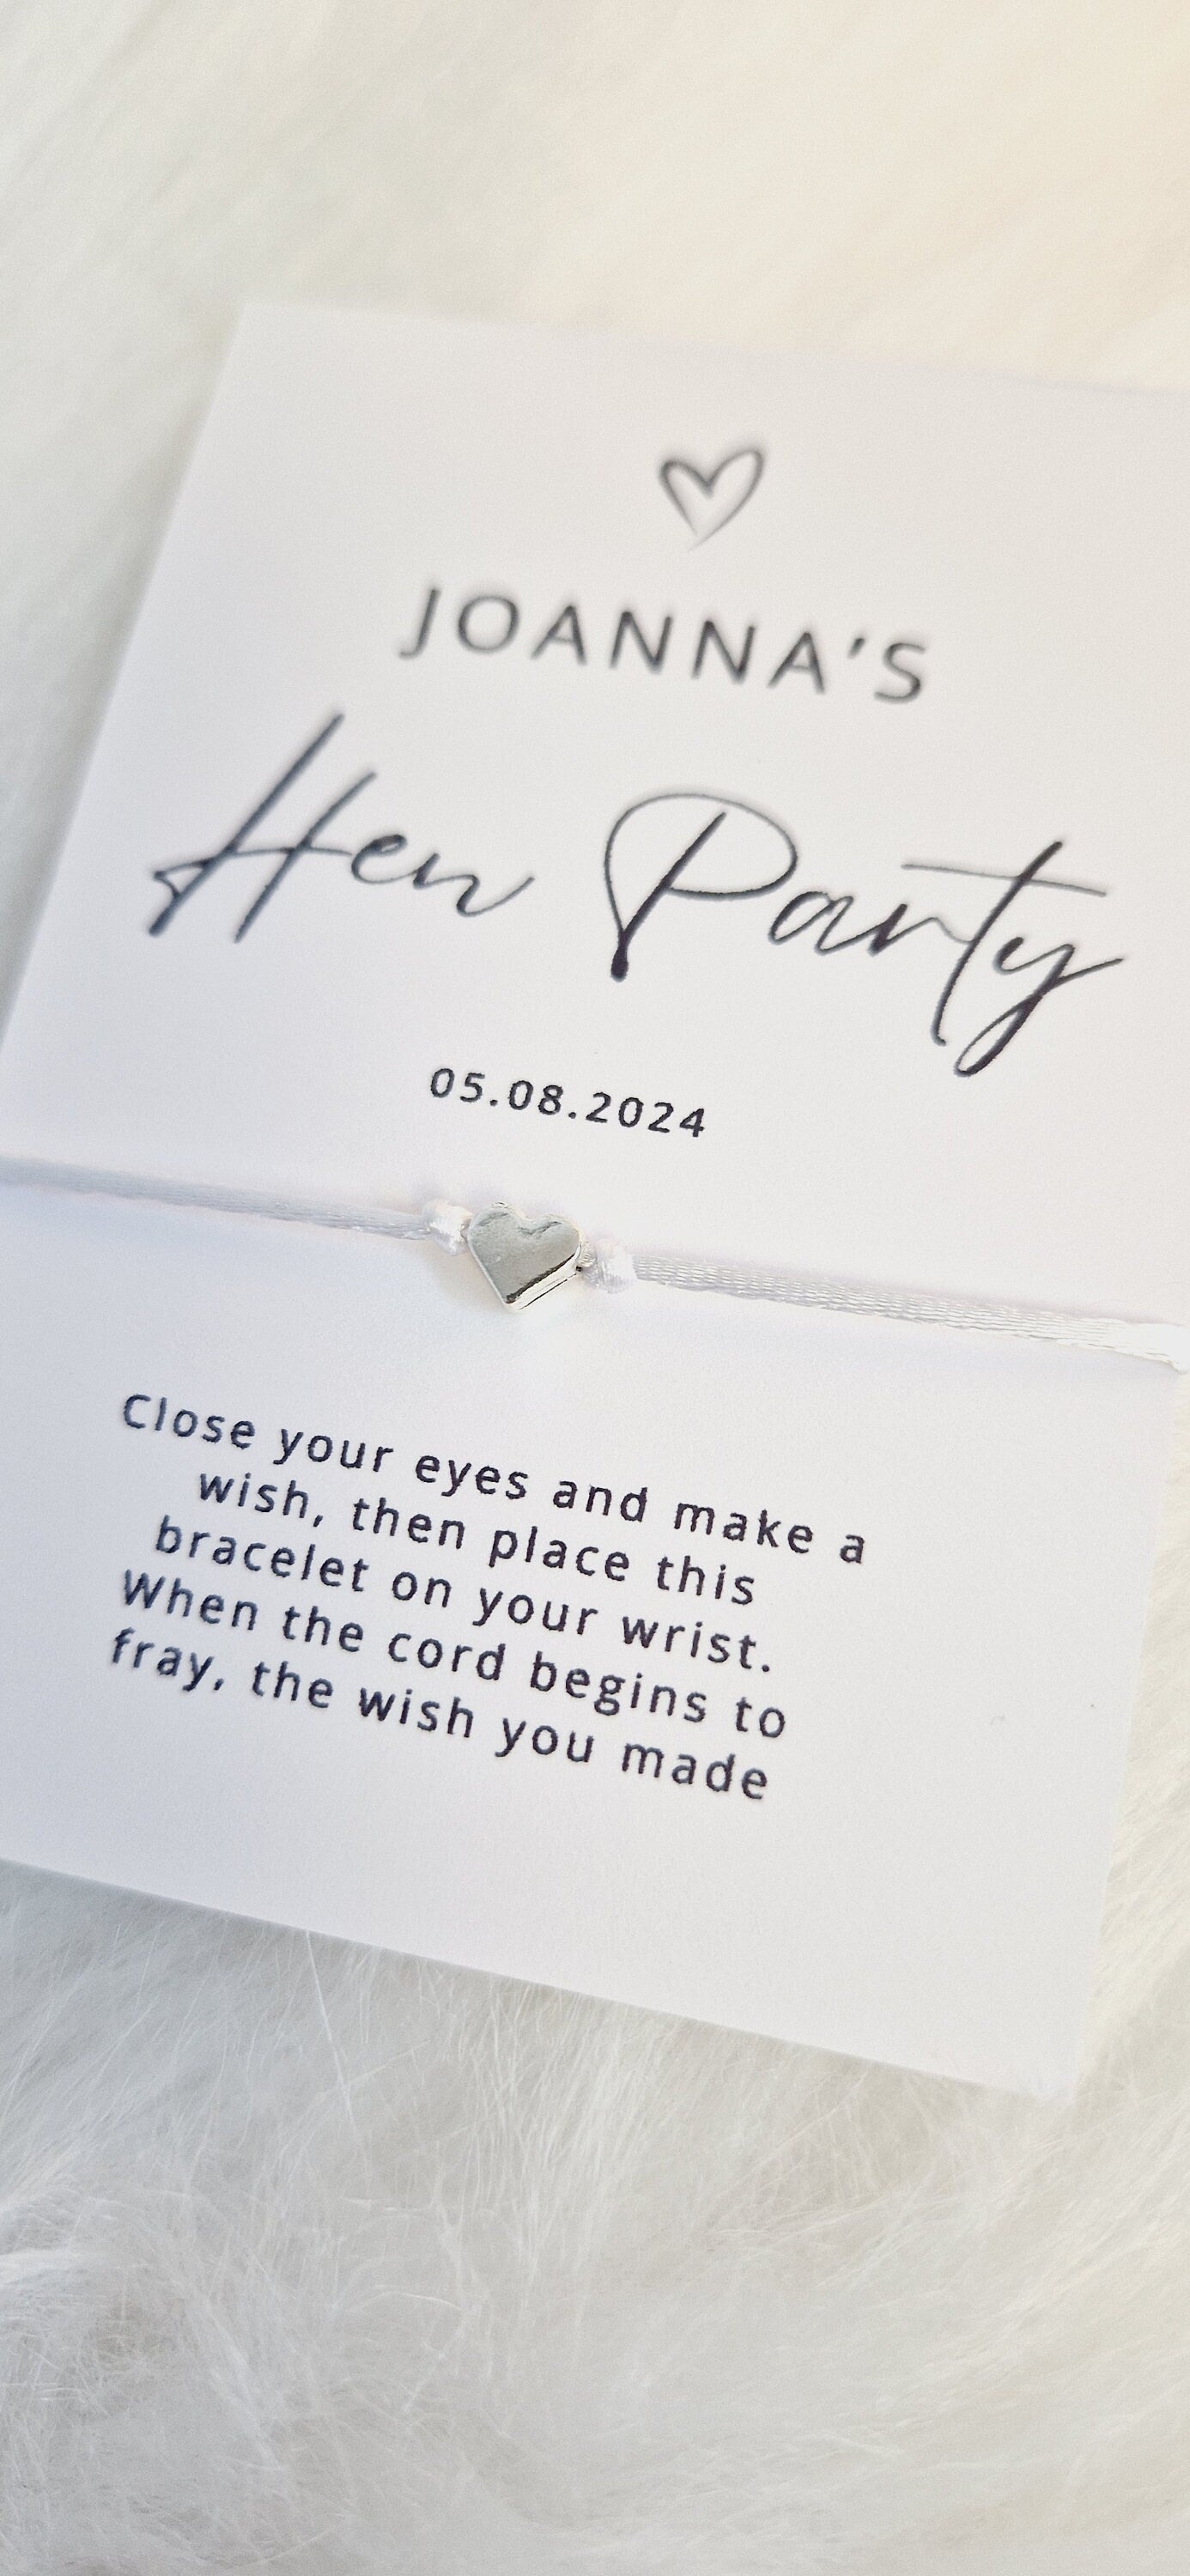 JOANNA'S
Hen Party
05.08.2024
Close your eyes and make a
wish, then place this
bracelet on your wrist.
When the cord begins to
fray, the wish you made